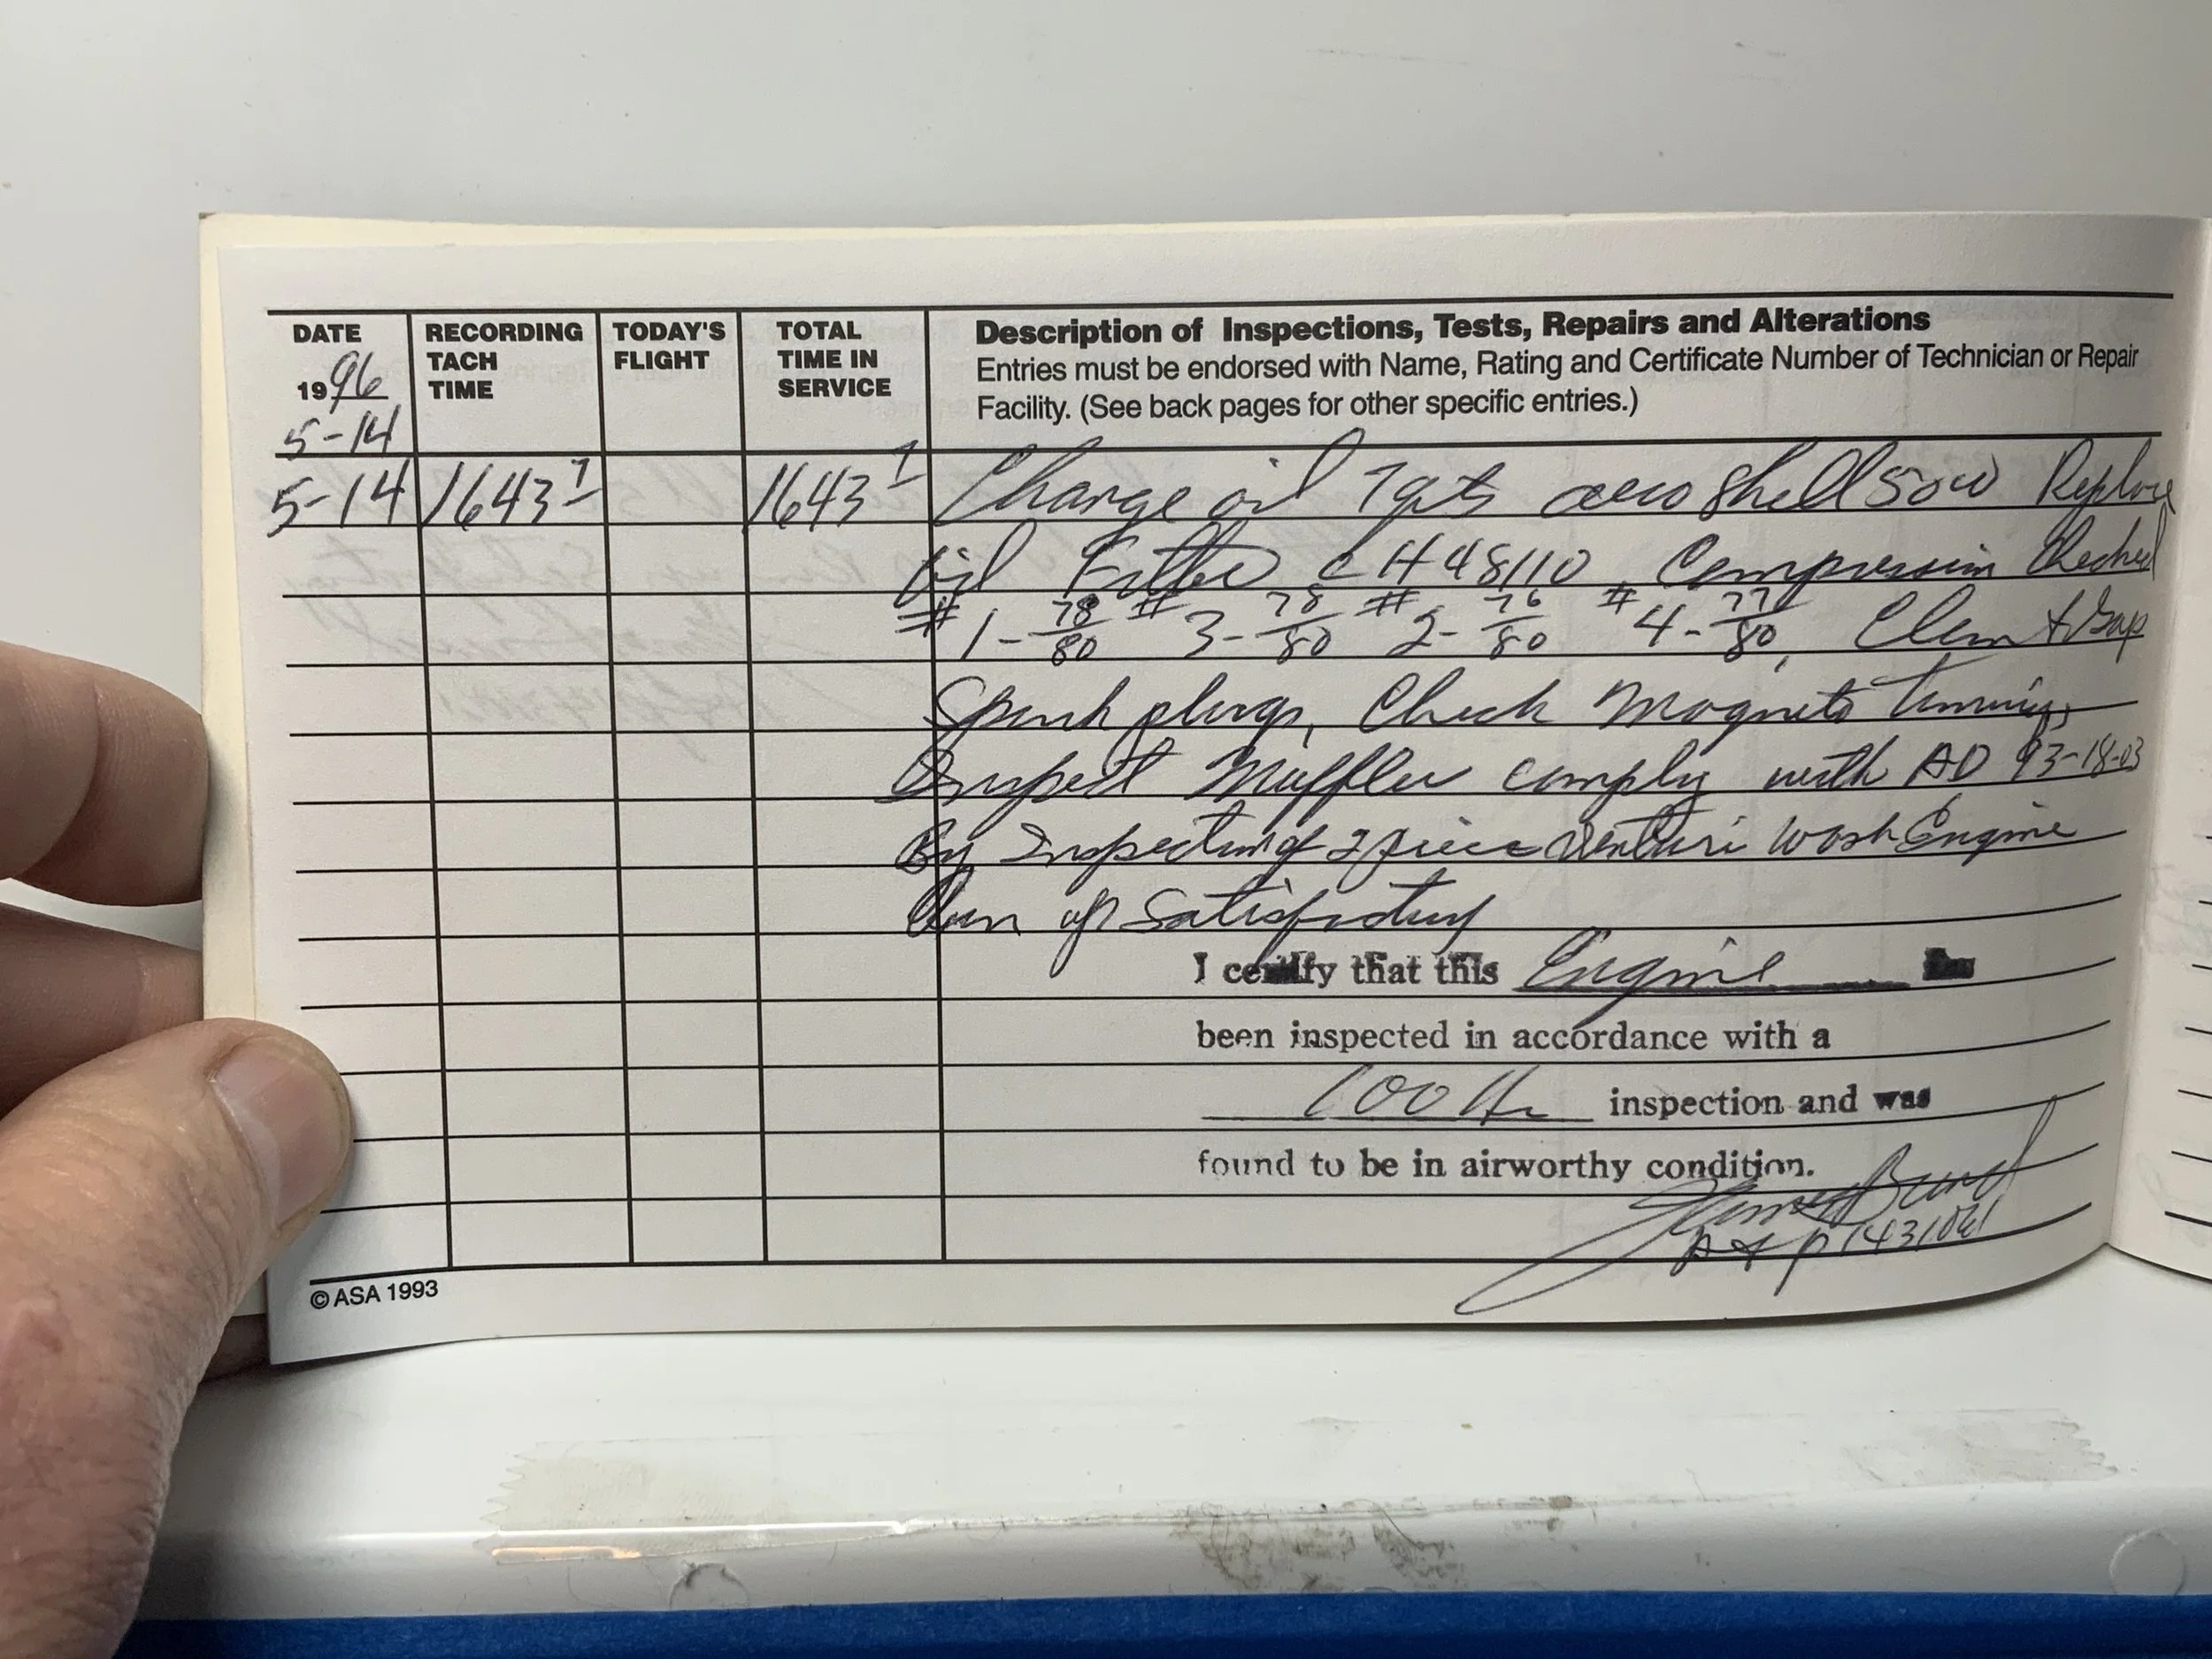 DATE RECORDING TACH TIME TODAY'S FLIGHT TOTAL TIME IN SERVICE Description of Inspections, Tests, Repairs and Alterations
1996 Entries must be endorsed with Name, Rating and Certificate Number of Technician or Repair
5-14 Facility. (See back pages for other specific entries.)
5-14 1643 1643 Change oil 7qts aeroshell 50W Replace
Oil Filter CH48110, Compression Checked
#1-78/80 #3-78/80 #2-76/80 #4-77/80, Clean & Gap
Spark plugs, Check Magneto Timing,
Inspect Muffler comply with AD 93-18-03
By Inspecting 2 piece Venturi Wash Engine
Run up Satisfactory
I certify that this Engine has
been inspected in accordance with a
100 Hr inspection and was
found to be in airworthy condition.
A&P
© ASA 1993